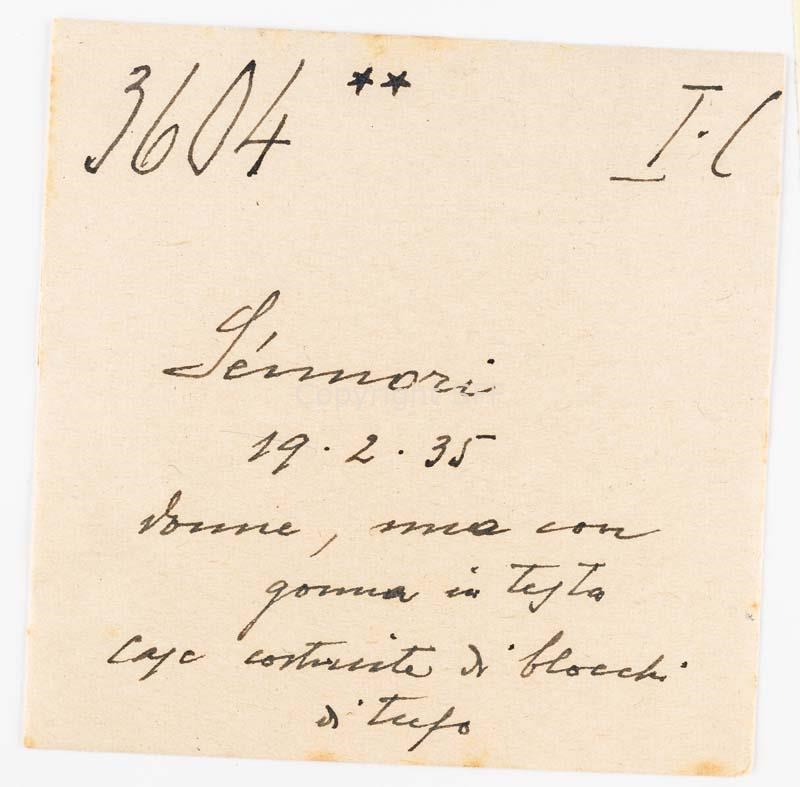 3604 ** I·C
Sénnori
19·2·35
donne, una con
gonna in testa
case costruite di blocchi
di tufo